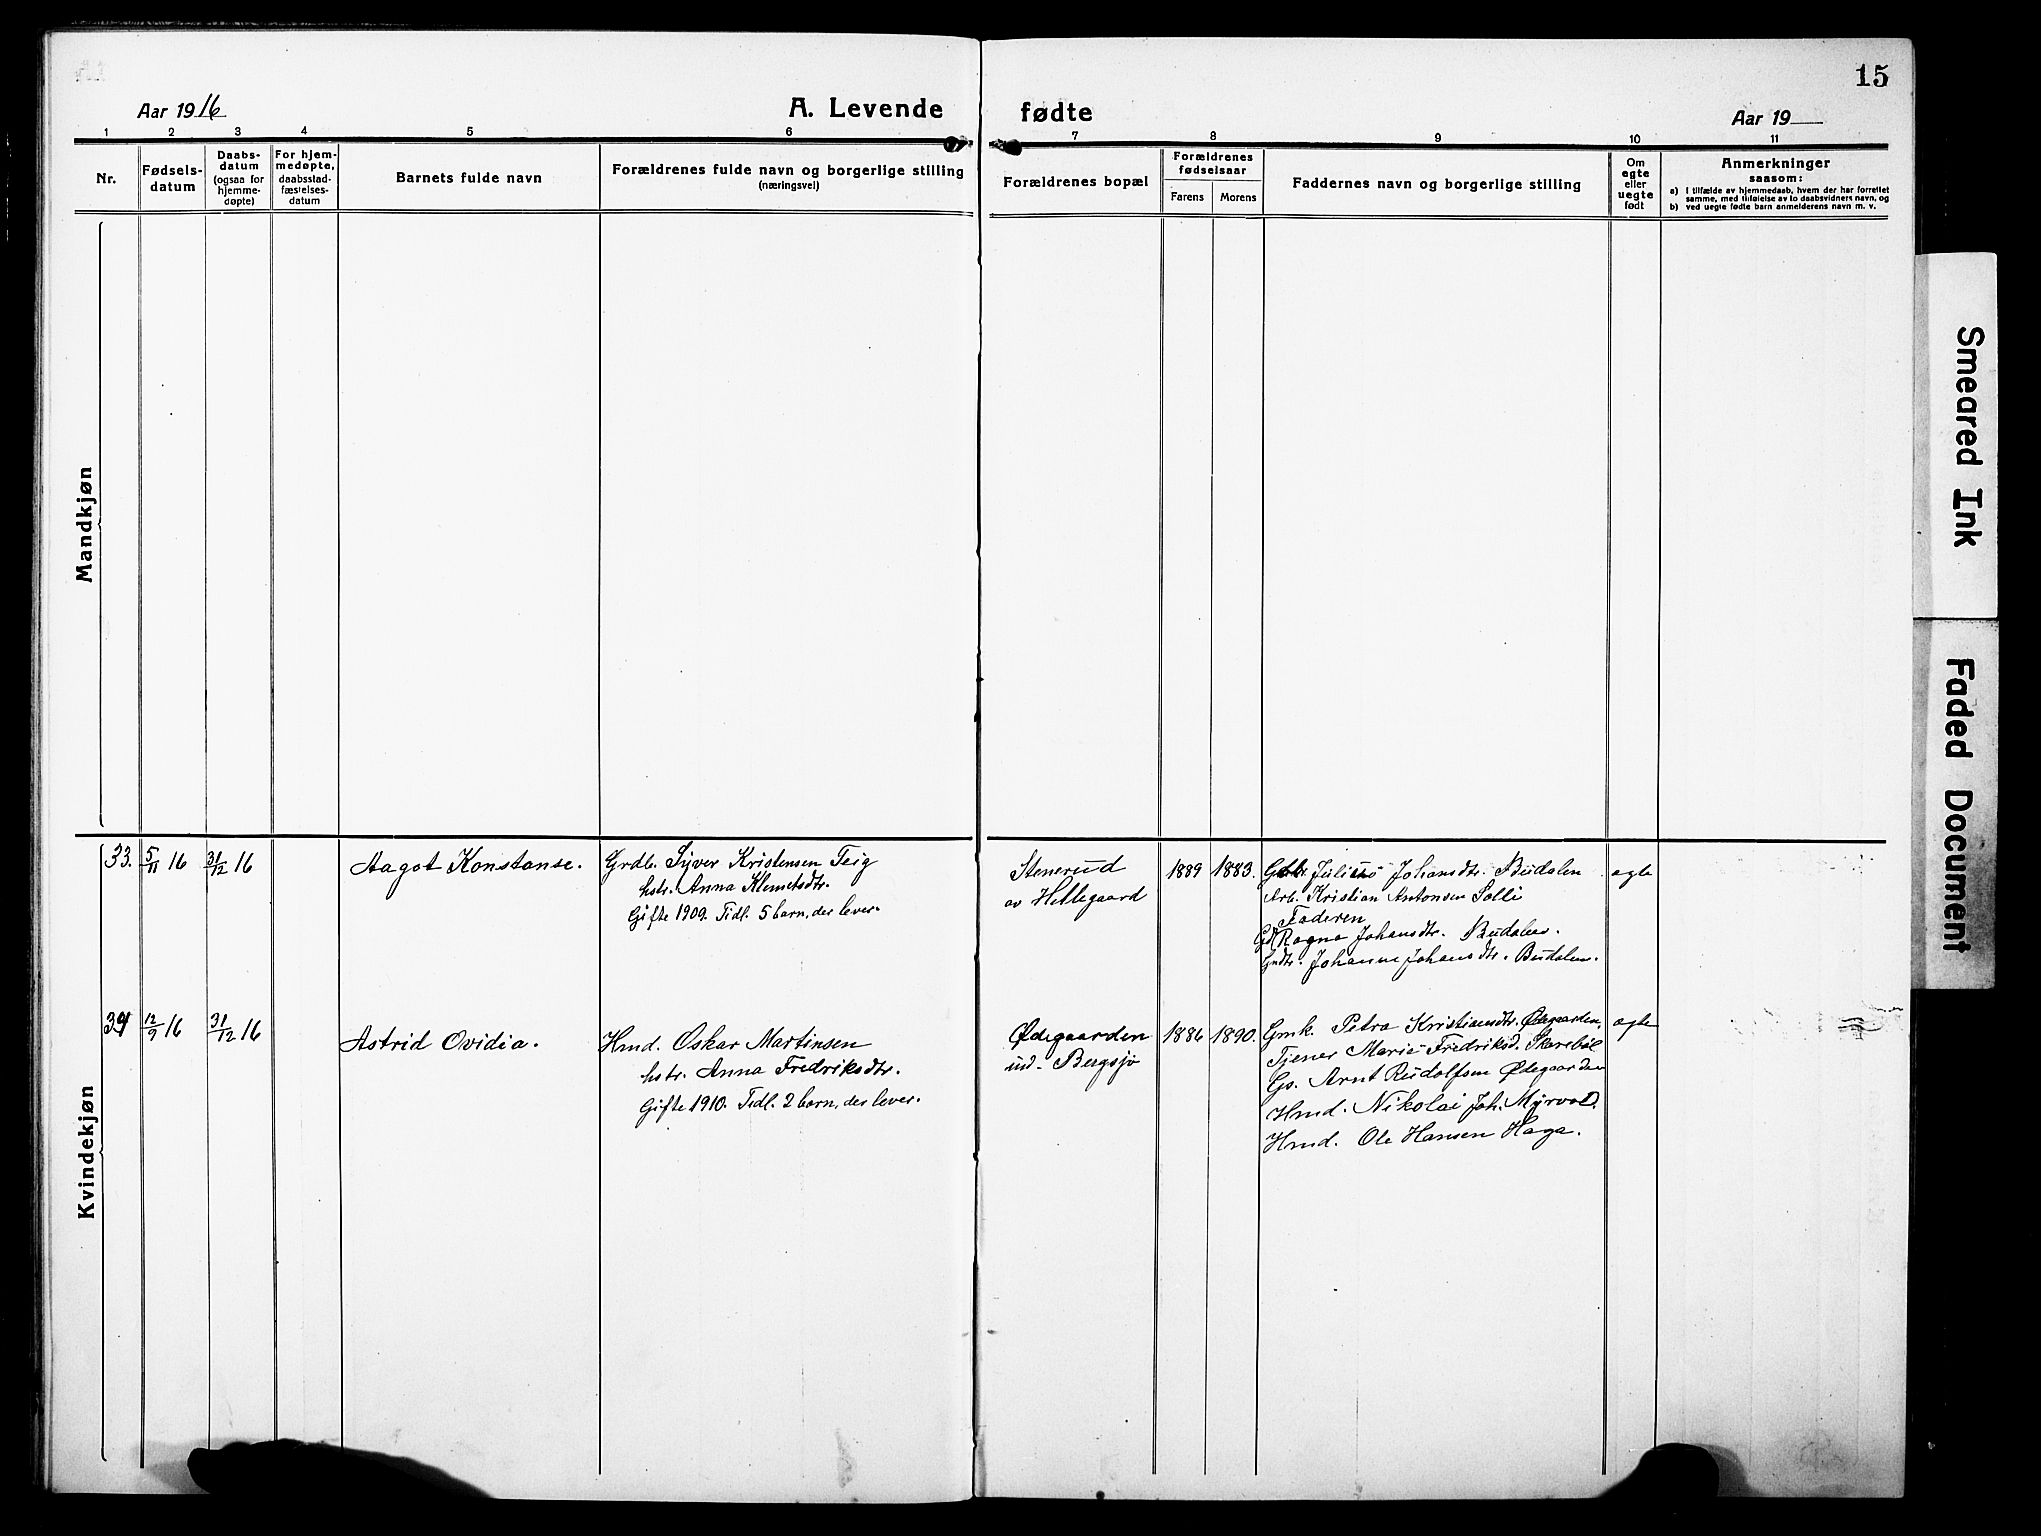 15
Aar 1916
A. Levende
fødte
Aar 19
1 2 3 4 5 6 7 8 9 10 11
Nr.
Fødsels-
datum
Daabs-
datum
(ogsaa for
hjemme-
døpte)
For hjem-
medøpte,
daabsstad-
fæstelses-
datum
Barnets fulde navn
Forældrenes fulde navn og borgerlige stilling
(næringsvei)
Forældrenes bopæl
Forældrenes
fødselsaar
Farens Morens
Faddernes navn og borgerlige stilling
Om
egte
eller
uegte
født
Anmerkninger
saasom:
a) I tilfælde av hjemmedaab, hvem der har forrettet
samme, med tilføielse av to daabsvidners navn, og
b) ved uegte fødte barn anmelderens navn m. v.
Mandkjøn
Kvindekjøn
33. 5/11 16 31/12 16
Aagot Konstanse.
Grdb. Syver Kristensen Teig
hstr. Anna Klemetsdtr.
Gifte 1909. Tidl. 5 barn, der lever.
Stenerud
av Hellegaard
1889 1883.
Julius Johansdtr. Budalen
Arb. Kristian Antonsen Solli
Faderen
Ragna Johansdtr. Budalen.
Gmdtr. Johanne Johansdtr. Budalen.
egte
34 12/9 16 31/12 16
Astrid Ovidia.
Hmd. Oskar Martinsen
hstr. Anna Fredriksdtr.
Gifte 1910. Tidl. 2 barn, der lever.
Ødegaarden
und. Bergsjø
1886 1890.
Gmk. Petra Kristiansdtr. Ødegaarden.
Tjener Marie Fredriksd. Skarebøl
Gs. Arnt Rudolfsen Ødegaarden
Hmd. Nikolai Joh. Myrvold.
Hmd. Ole Hansen Haga.
egte
Smeared Ink
Faded Document